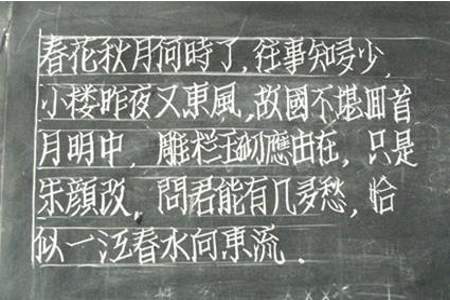 春花秋月何時了，往事知多少，
小楼昨夜又東風，故國不堪回首
月明中，雕栏玉砌應由在，只是
朱顔改，問君能有几多愁，恰
似一江春水向東流．